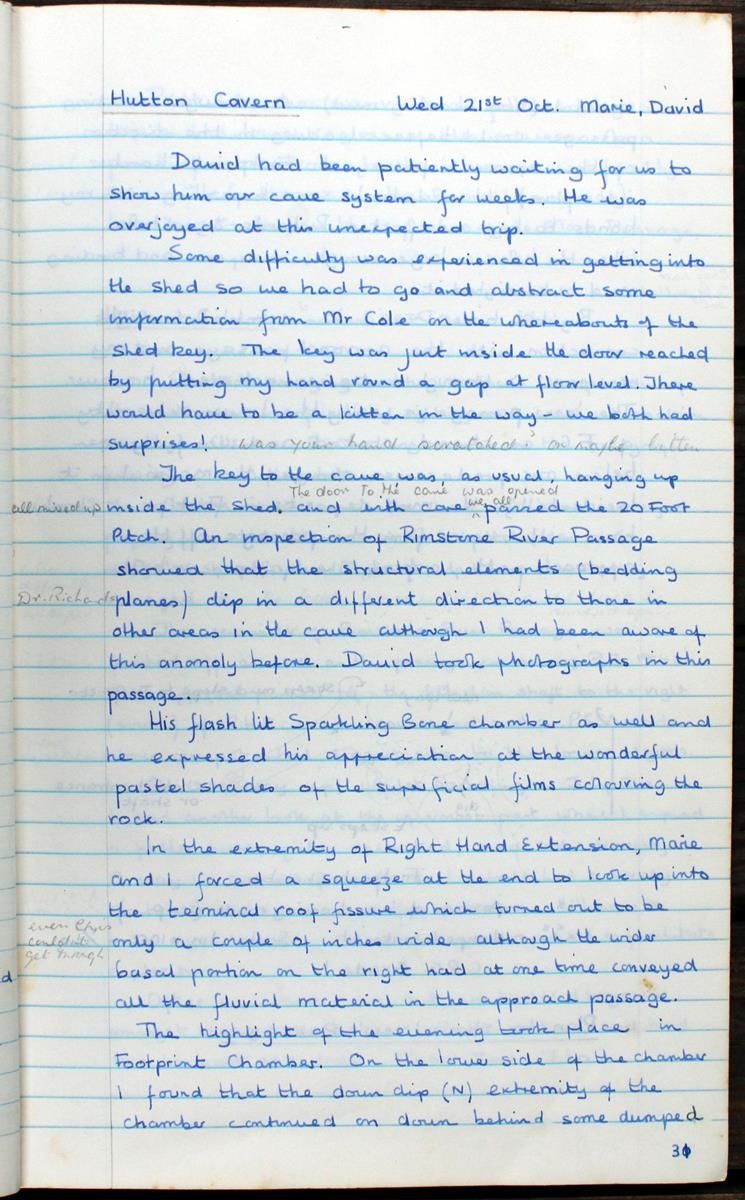 Hutton Cavern Wed 21st Oct. Marie, David
David had been patiently waiting for us to
show him our cave system for weeks. He was
overjoyed at this unexpected trip.
Some difficulty was experienced in getting into
the shed so we had to go and abstract some
information from Mr Cole on the whereabouts of the
shed key. The key was just inside the door reached
by putting my hand round a gap at floor level. There
would have to be a kitten in the way - we both had
surprises! was your hand scratched? or maybe bitten
The key to the cave was, as usual, hanging up
The door to the cave was opened
all mixed up inside the shed, and with care we all passed the 20 Foot
Pitch. An inspection of Rimstone River Passage
showed that the structural elements (bedding
Dr. Richards planes) dip in a different direction to those in
other areas in the cave although I had been aware of
this anomoly before. David took photographs in this
passage.
His flash lit Sparkling Bone chamber as well and
he expressed his appreciation at the wonderful
pastel shades of the superficial films colouring the
rock.
In the extremity of Right Hand Extension, Marie
and I forced a squeeze at the end to look up into
the terminal roof fissure which turned out to be
even Chris
couldn't
get through
only a couple of inches wide although the wider
basal portion on the right had at one time conveyed
all the fluvial material in the approach passage.
The highlight of the evening took place in
Footprint Chamber. On the lower side of the chamber
I found that the down dip (N) extremity of the
chamber continued on down behind some dumped